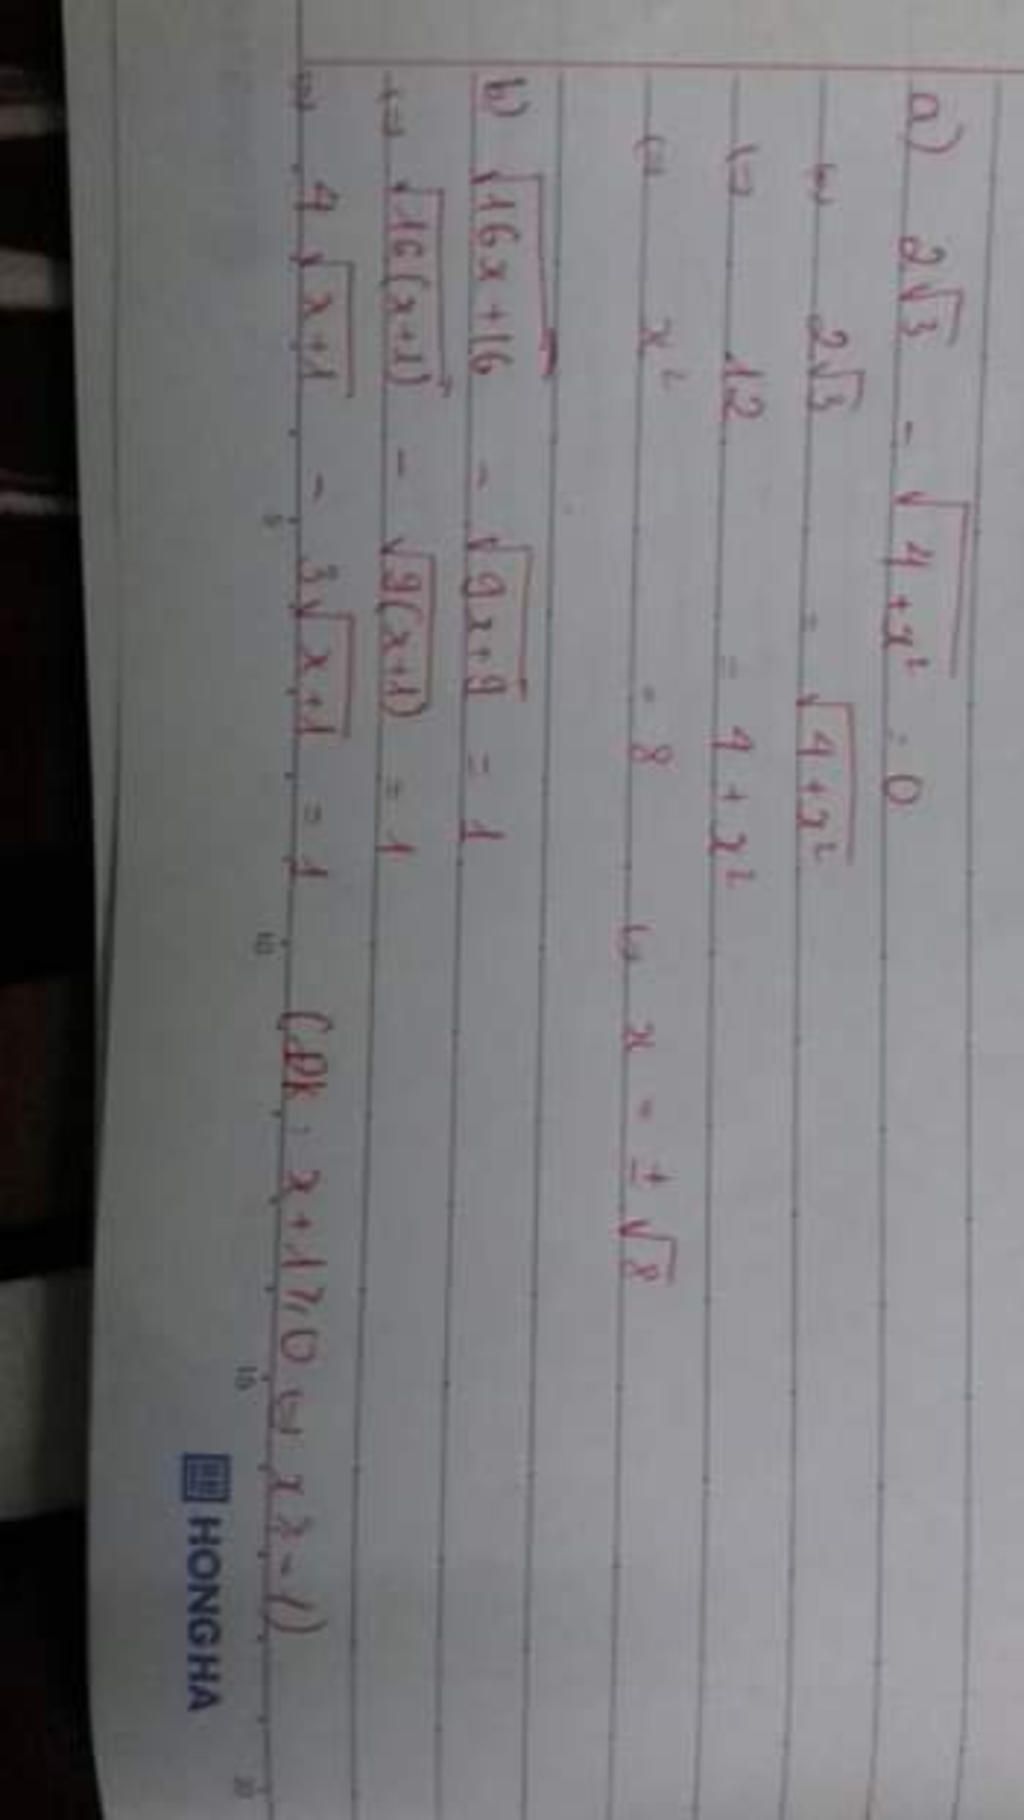 a) 2√3 - √4+x² = 0
⇔ 2√3 = √4+x²
⇔ 12 = 4 + x²
⇔ x² = 8 ⇔ x = ± √8
b) √16x+16 - √9x+9 = 1
⇔ √16(x+1) - √9(x+1) = 1
⇔ 4√x+1 - 3√x+1 = 1 (ĐK: x+1 ≥ 0 ⇔ x ≥ -1)
5 10 15 20
HONG HA